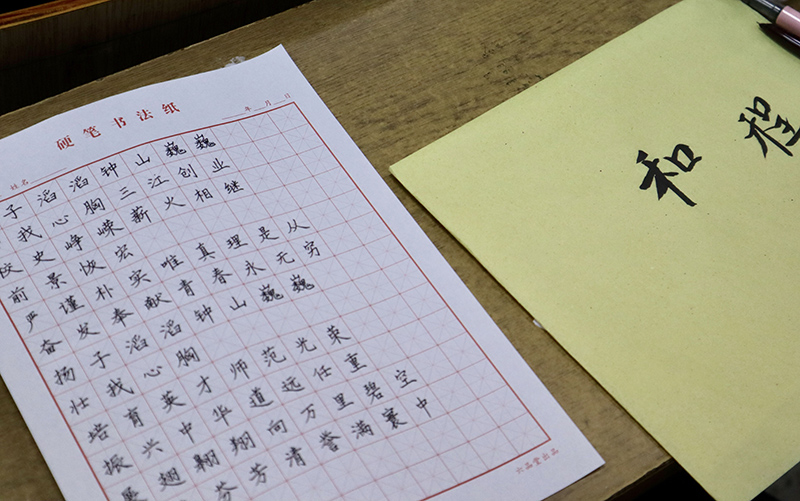 硬笔书法纸
姓名 年 月 日
子滔滔钟山巍巍
我心胸三江创业
校史峥嵘薪火相继
前景恢宏
严谨朴实唯真理是从
奋发奉献青春永无穷
扬子滔滔钟山巍巍
壮我心胸
培育英才师范光荣
振兴中华道远任重
展翅翱翔向万里碧空
芬芳清誉满寰中
六品堂出品
和程